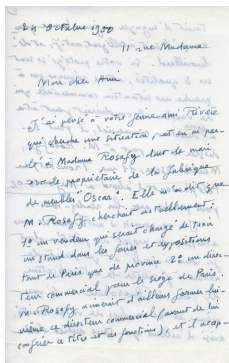 24 Octobre 1950
11 rue Madame
Mon cher Ami
J'ai pensé à votre jeune ami
qui cherche une situation, et en ai par-
lé à Madame Rosafy dont le mari
est propriétaire de la fabrique
de meubles Oscar. Elle m'a dit que
M. Rosafy cherchait actuellement:
1º un vendeur qui serait chargé de tenir
un stand dans les foires et expositions
tant de Paris que de province 2º un direc-
teur commercial pour le siège de Paris.
M. Rosafy aimerait d'ailleurs former lui-
même ce directeur commercial (avant de lui
confier ce titre et ces fonctions), et